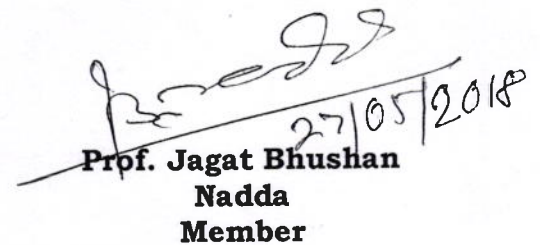 27/05/2018
Prof. Jagat Bhushan
Nadda
Member